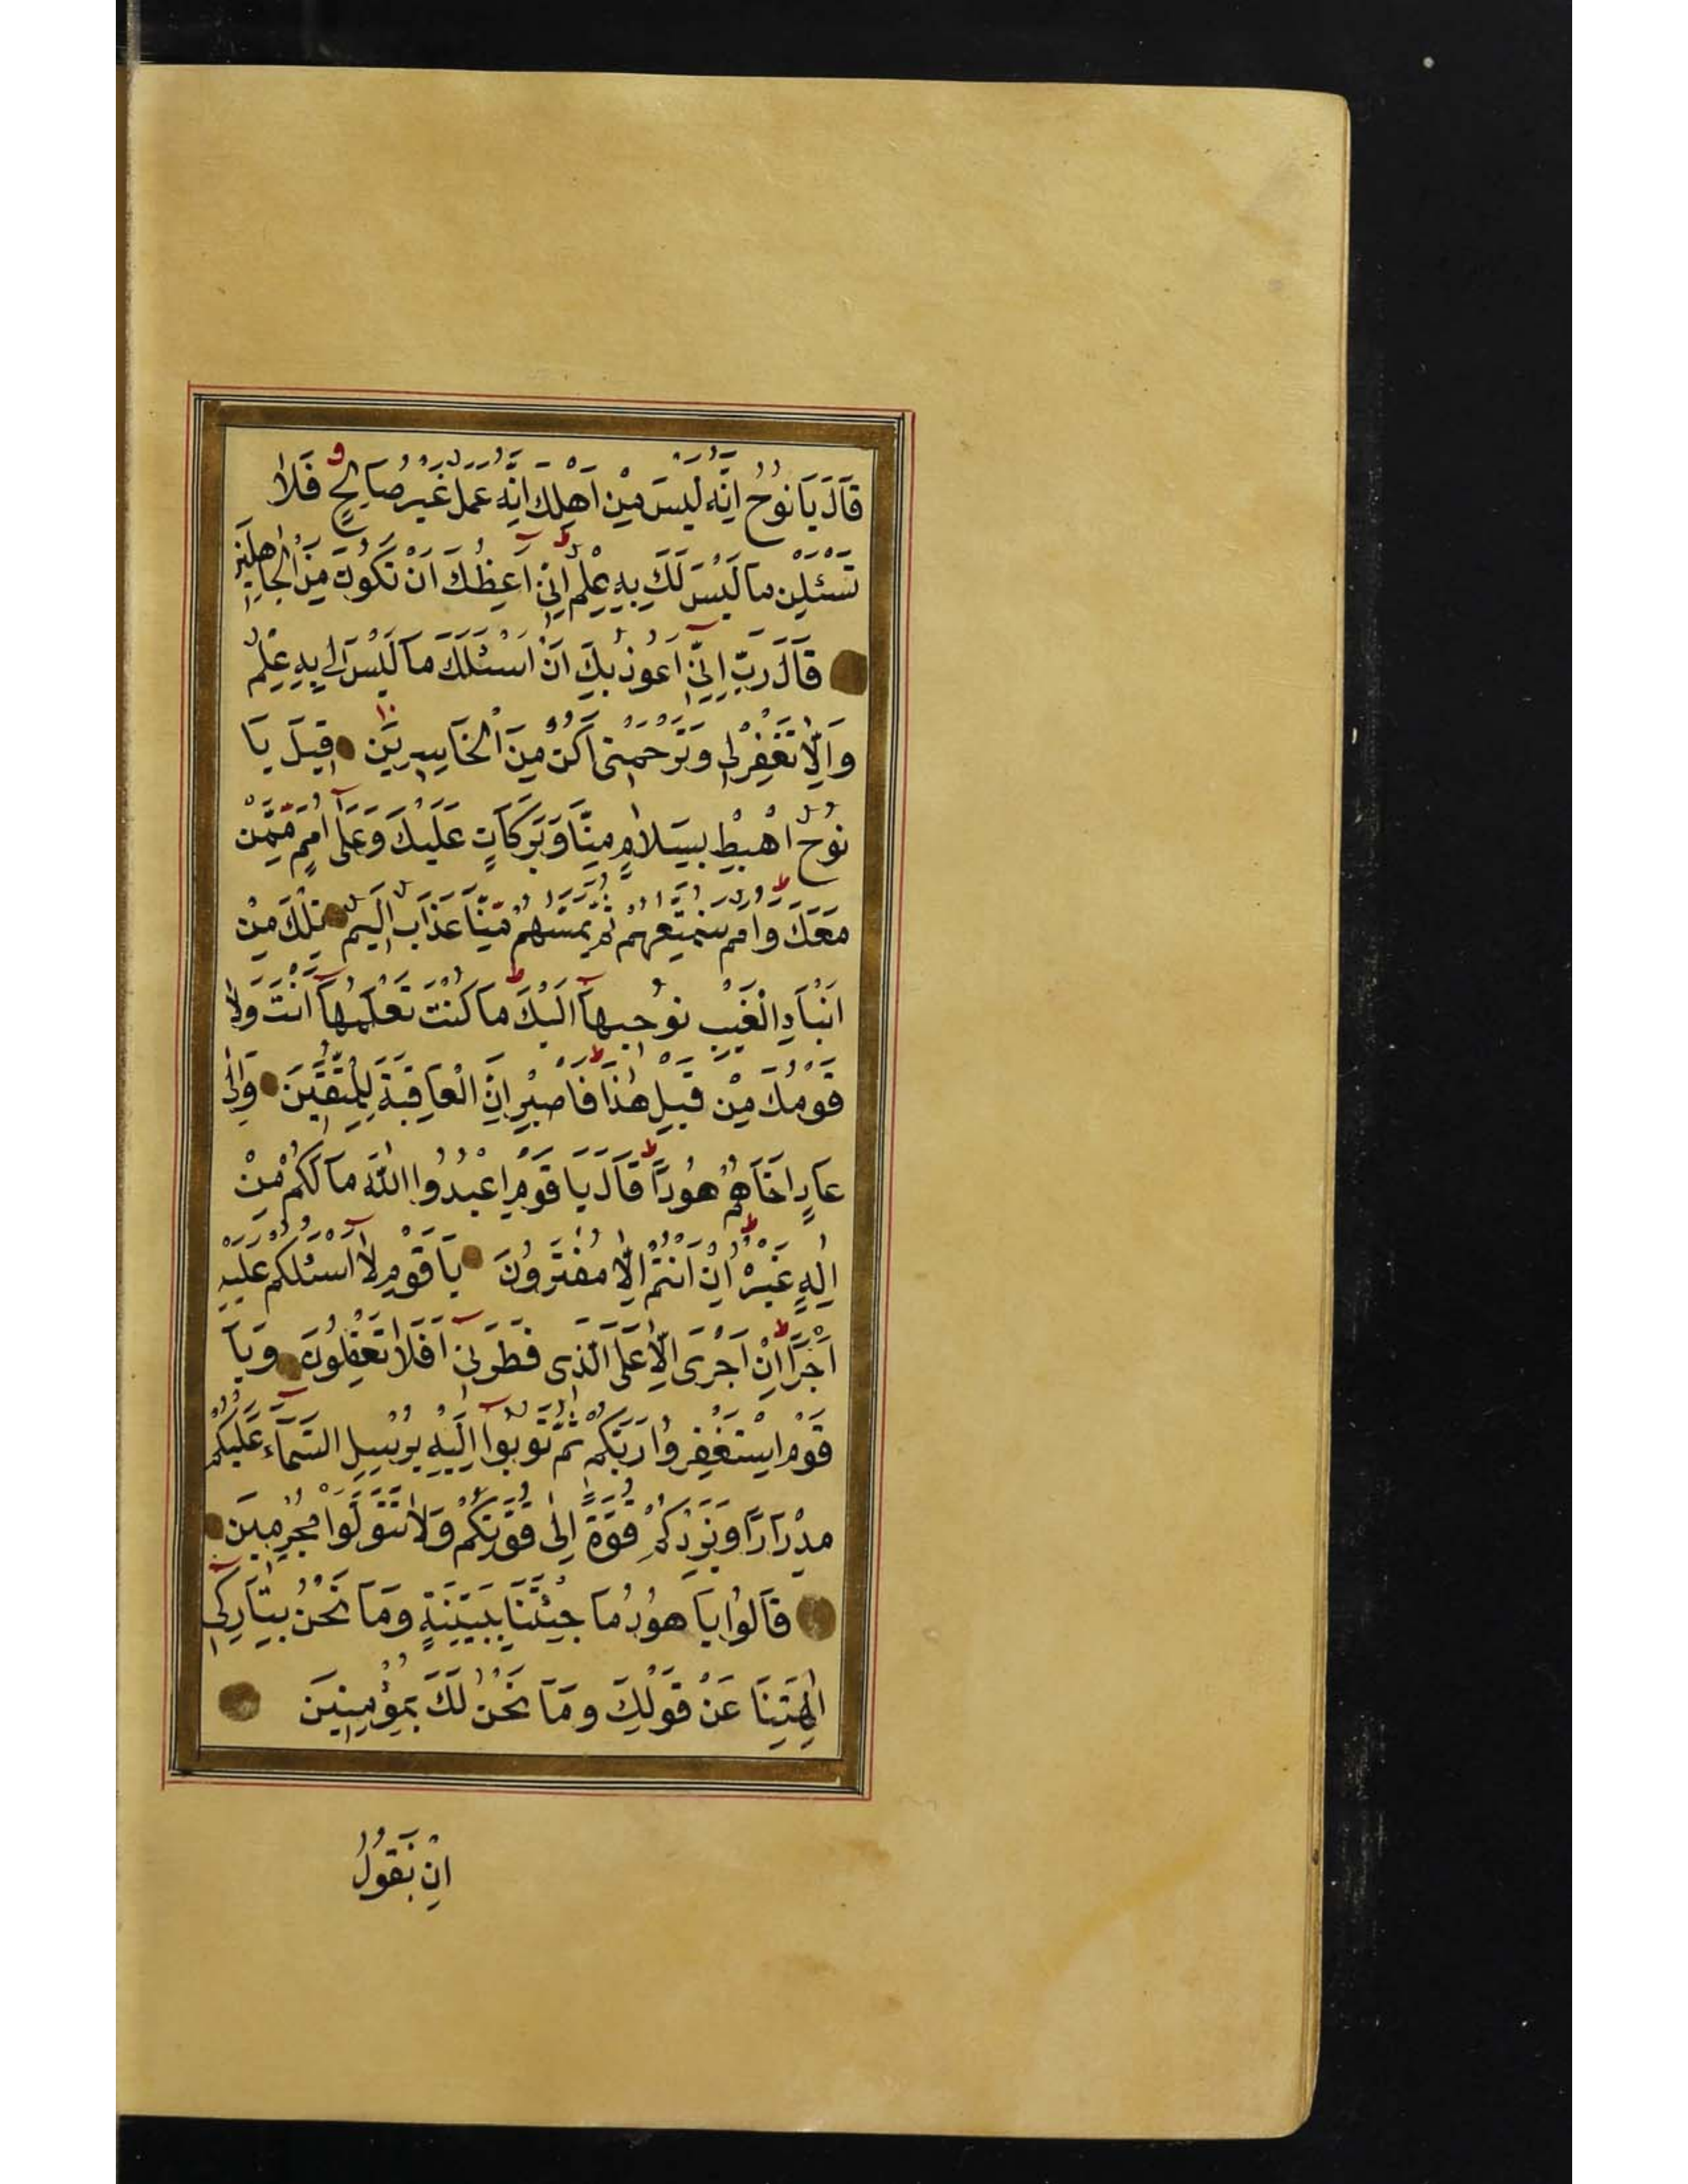 قَالَ يَا نُوحُ اِنَّهُ لَيْسَ مِنْ اَهْلِكَ اِنَّهُ عَمَلٌ غَيْرُ صَالِحٍ فَلَا
تَسْئَلْنِ مَا لَيْسَ لَكَ بِهِ عِلْمٌ اِنِّي اَعِظُكَ اَنْ تَكُونَ مِنَ الْجَاهِلِينَ
قَالَ رَبِّ اِنِّي اَعُوذُ بِكَ اَنْ اَسْئَلَكَ مَا لَيْسَ لِي بِهِ عِلْمٌ
وَاِلَّا تَغْفِرْ لِي وَتَرْحَمْنِي اَكُنْ مِنَ الْخَاسِرِينَ قِيلَ يَا
نُوحُ اهْبِطْ بِسَلَامٍ مِنَّا وَبَرَكَاتٍ عَلَيْكَ وَعَلَى اُمَمٍ مِمَّنْ
مَعَكَ وَاُمَمٌ سَنُمَتِّعُهُمْ ثُمَّ يَمَسُّهُمْ مِنَّا عَذَابٌ اَلِيمٌ تِلْكَ مِنْ
اَنْبَاءِ الْغَيْبِ نُوحِيهَا اِلَيْكَ مَا كُنْتَ تَعْلَمُهَا اَنْتَ وَلَا
قَوْمُكَ مِنْ قَبْلِ هٰذَا فَاصْبِرْ اِنَّ الْعَاقِبَةَ لِلْمُتَّقِينَ وَاِلٰى
عَادٍ اَخَاهُمْ هُودًا قَالَ يَا قَوْمِ اعْبُدُوا اللّٰهَ مَا لَكُمْ مِنْ
اِلٰهٍ غَيْرُهُ اِنْ اَنْتُمْ اِلَّا مُفْتَرُونَ يَا قَوْمِ لَا اَسْئَلُكُمْ عَلَيْهِ
اَجْرًا اِنْ اَجْرِيَ اِلَّا عَلَى الَّذِي فَطَرَنِي اَفَلَا تَعْقِلُونَ وَيَا
قَوْمِ اسْتَغْفِرُوا رَبَّكُمْ ثُمَّ تُوبُوا اِلَيْهِ يُرْسِلِ السَّمَاءَ عَلَيْكُمْ
مِدْرَارًا وَيَزِدْكُمْ قُوَّةً اِلٰى قُوَّتِكُمْ وَلَا تَتَوَلَّوْا مُجْرِمِينَ
قَالُوا يَا هُودُ مَا جِئْتَنَا بِبَيِّنَةٍ وَمَا نَحْنُ بِتَارِكِي
اٰلِهَتِنَا عَنْ قَوْلِكَ وَمَا نَحْنُ لَكَ بِمُؤْمِنِينَ
اِنْ نَقُولُ